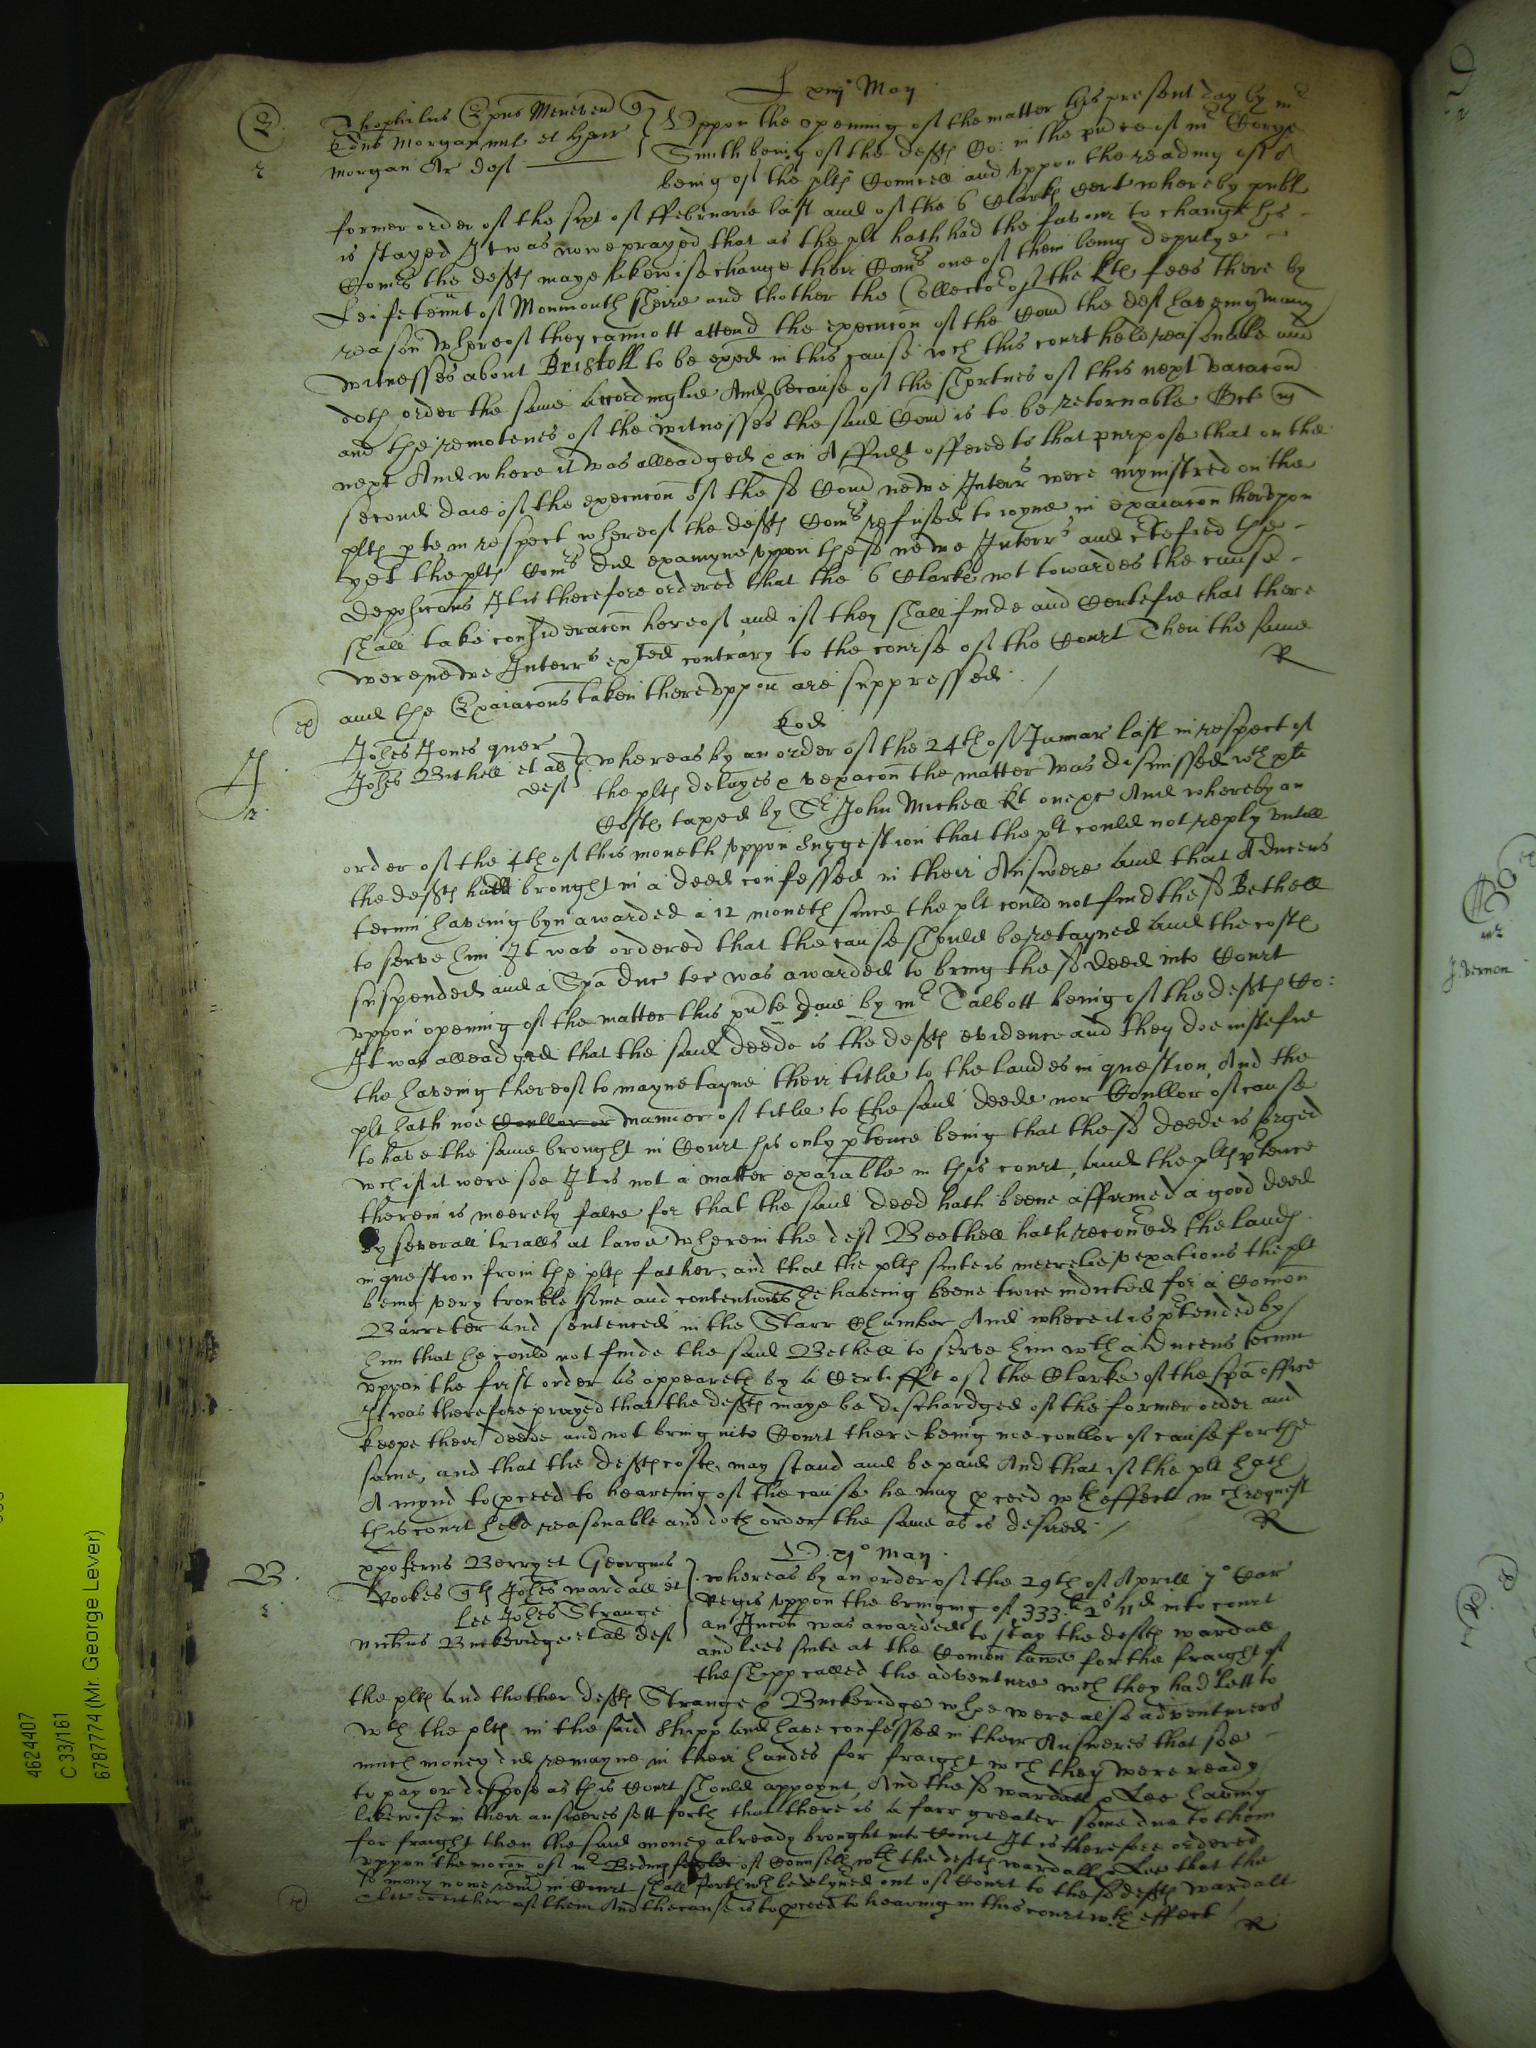 L xiiij° May
E
r
Theophilus Epus Meneven q
Edus Morgan mil et Henr
Morgan Ar def
Uppon the openning of the matter this present day by mr
Smith being of the defts Co: in the pnce of mr George
being of the plts Councell and uppon the reading of a
former order of the sixt of ffebruarie last and of the 6 Clarks cert whereby publ
is stayed It was nowe prayed that as the plt hath had the favour to change his
Comrs the defts maye likewise change their Comrs one of them being deputye
Leiftennt of Monmouth sheire and thother the Collector of the Kts fees there by
reason whereof they cannott attend the execucon of the Com the def haveing many
witnesses about Bristoll to be exed in this cause wch this court held reasonable and
doth order the same accordinglie And because of the shortnes of this next vacacon
and the remotenes of the witnesses the said Com is to be retornable Oct
next And where it was alleadged & an Affidt offered to that purpose that on the
second daie of the execucon of the sd Com newe Interrs were mynistred on the
plts pte in respect whereof the defts Comrs refused to ioyne in exaiacon therupon
yet the plts Comrs did examyne uppon these newe Interrs and certefied the
deposicons It is therefore ordered that the 6 Clarks not towardes the cause
shall take consideracon hereof and if they shall finde and Certefie that there
were newe Interrs exted contrary to the course of the Court Then the same
and the Exaiacons taken thereuppon are suppressed
R
ex
Eod
J
r
Johes Jones quer
Johes Bethell et al
def
whereas by an order of the 24th of Januar last in respect of
the plts delayes & vexacon the matter was dismissed wth plt
Costs taxed by Sr John Michell kt on ext And whereby an
order of the 4th of this moneth uppon suggestion that the plt could not reply untill
the defts hadd brought in a deed confessed in their Answere and that a ducens
tecum haveing byn awarded a 12 moneth since the plt could not find the sd Bethell
to serve him It was ordered that the cause should be retayned and the costs
suspended and a Spa duc tec was awarded to bring the sd deed into Court
uppon opening of the matter this pnte daie by mr Talbott being of the defts Co:
It was alleadged that the said deede is the defts evidence and they doe iustefie
the haveing thereof to maynetayne their title to the landes in question, And the
plt hath noe Coullor or manner of title to the said deede nor Coullor of cause
to have the same brought in Court his only ptence being that the sd deede is forged
wch if it were soe It is not a matter exaiable in this court, and the plts ptence
therein is meerely false for that the said deed hath beene affirmed a good deed
by severall trialls at lawe wherein the def Beethell hath recovered the lands
in question from the plts father, and that the plts suite is meerelie vexatious the plt
being very troublesome and contentious he haveing beene twice indicted for a Comon
Barreter and sentenced in the Starr Chamber And where it is ptended by
him that he could not finde the said Bethell to serve him wth a ducens tecum
uppon the first order as appeareth by a Certifft of the Clarke of the spa office
It was therefore prayed that the defts maye be dischardged of the former order and
keepe their deede and not bring into Court there being noe coullor of cause for the
same, and that the defts costs may stand and be paid And that if the plt hath
A mynd to pceed to heareing of the cause he may pceed wth effect wch request
this court held reasonable and doth order the same as is desired
R
D xj° May
B
Xpoferus Berry et Georgius
Rookes qts Johes wardall et
Lee Johes Strange
Nichus Buckeridge et al def
whereas by an order of the 29th of Aprill 7° Car
Regis uppon the bringing of 333li 2s 11d into court
an Iniuncon was awarded to stay the defts wardall
and lees suite at the Comon lawe for the fraight of
the shipp called the adventure wch they had lett to
the plts and thother defts Strange & Buckeridge whoe were also adventurers
wth the plts in the said shipp and have confessed in their Answeres that soe
much money did remayne in their handes for fraight wch they were ready
to pay or dispose as this Court should appoynt, And the sd wardall & Lee having
likewise in their answeres sett forth that there is a farr greater some due to them
for fraight then the said money already brought into Court It is therefore ordered
uppon the mocon of mr of Counsell wth the defts wardall & Lee that the
sd mony nowe remg in Court shall forthwth be delyvered out of Court to the sd defts Wardall
& Lee or either of them And the cause is to pceed to hearing in this court wth effect
R
ex
4624407
C 33/161
6787774 (Mr. George Lever)
J. Vernon